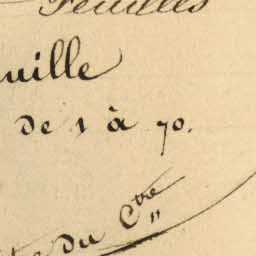 Feuilles
uille
de 1 à 70.
du Ctre